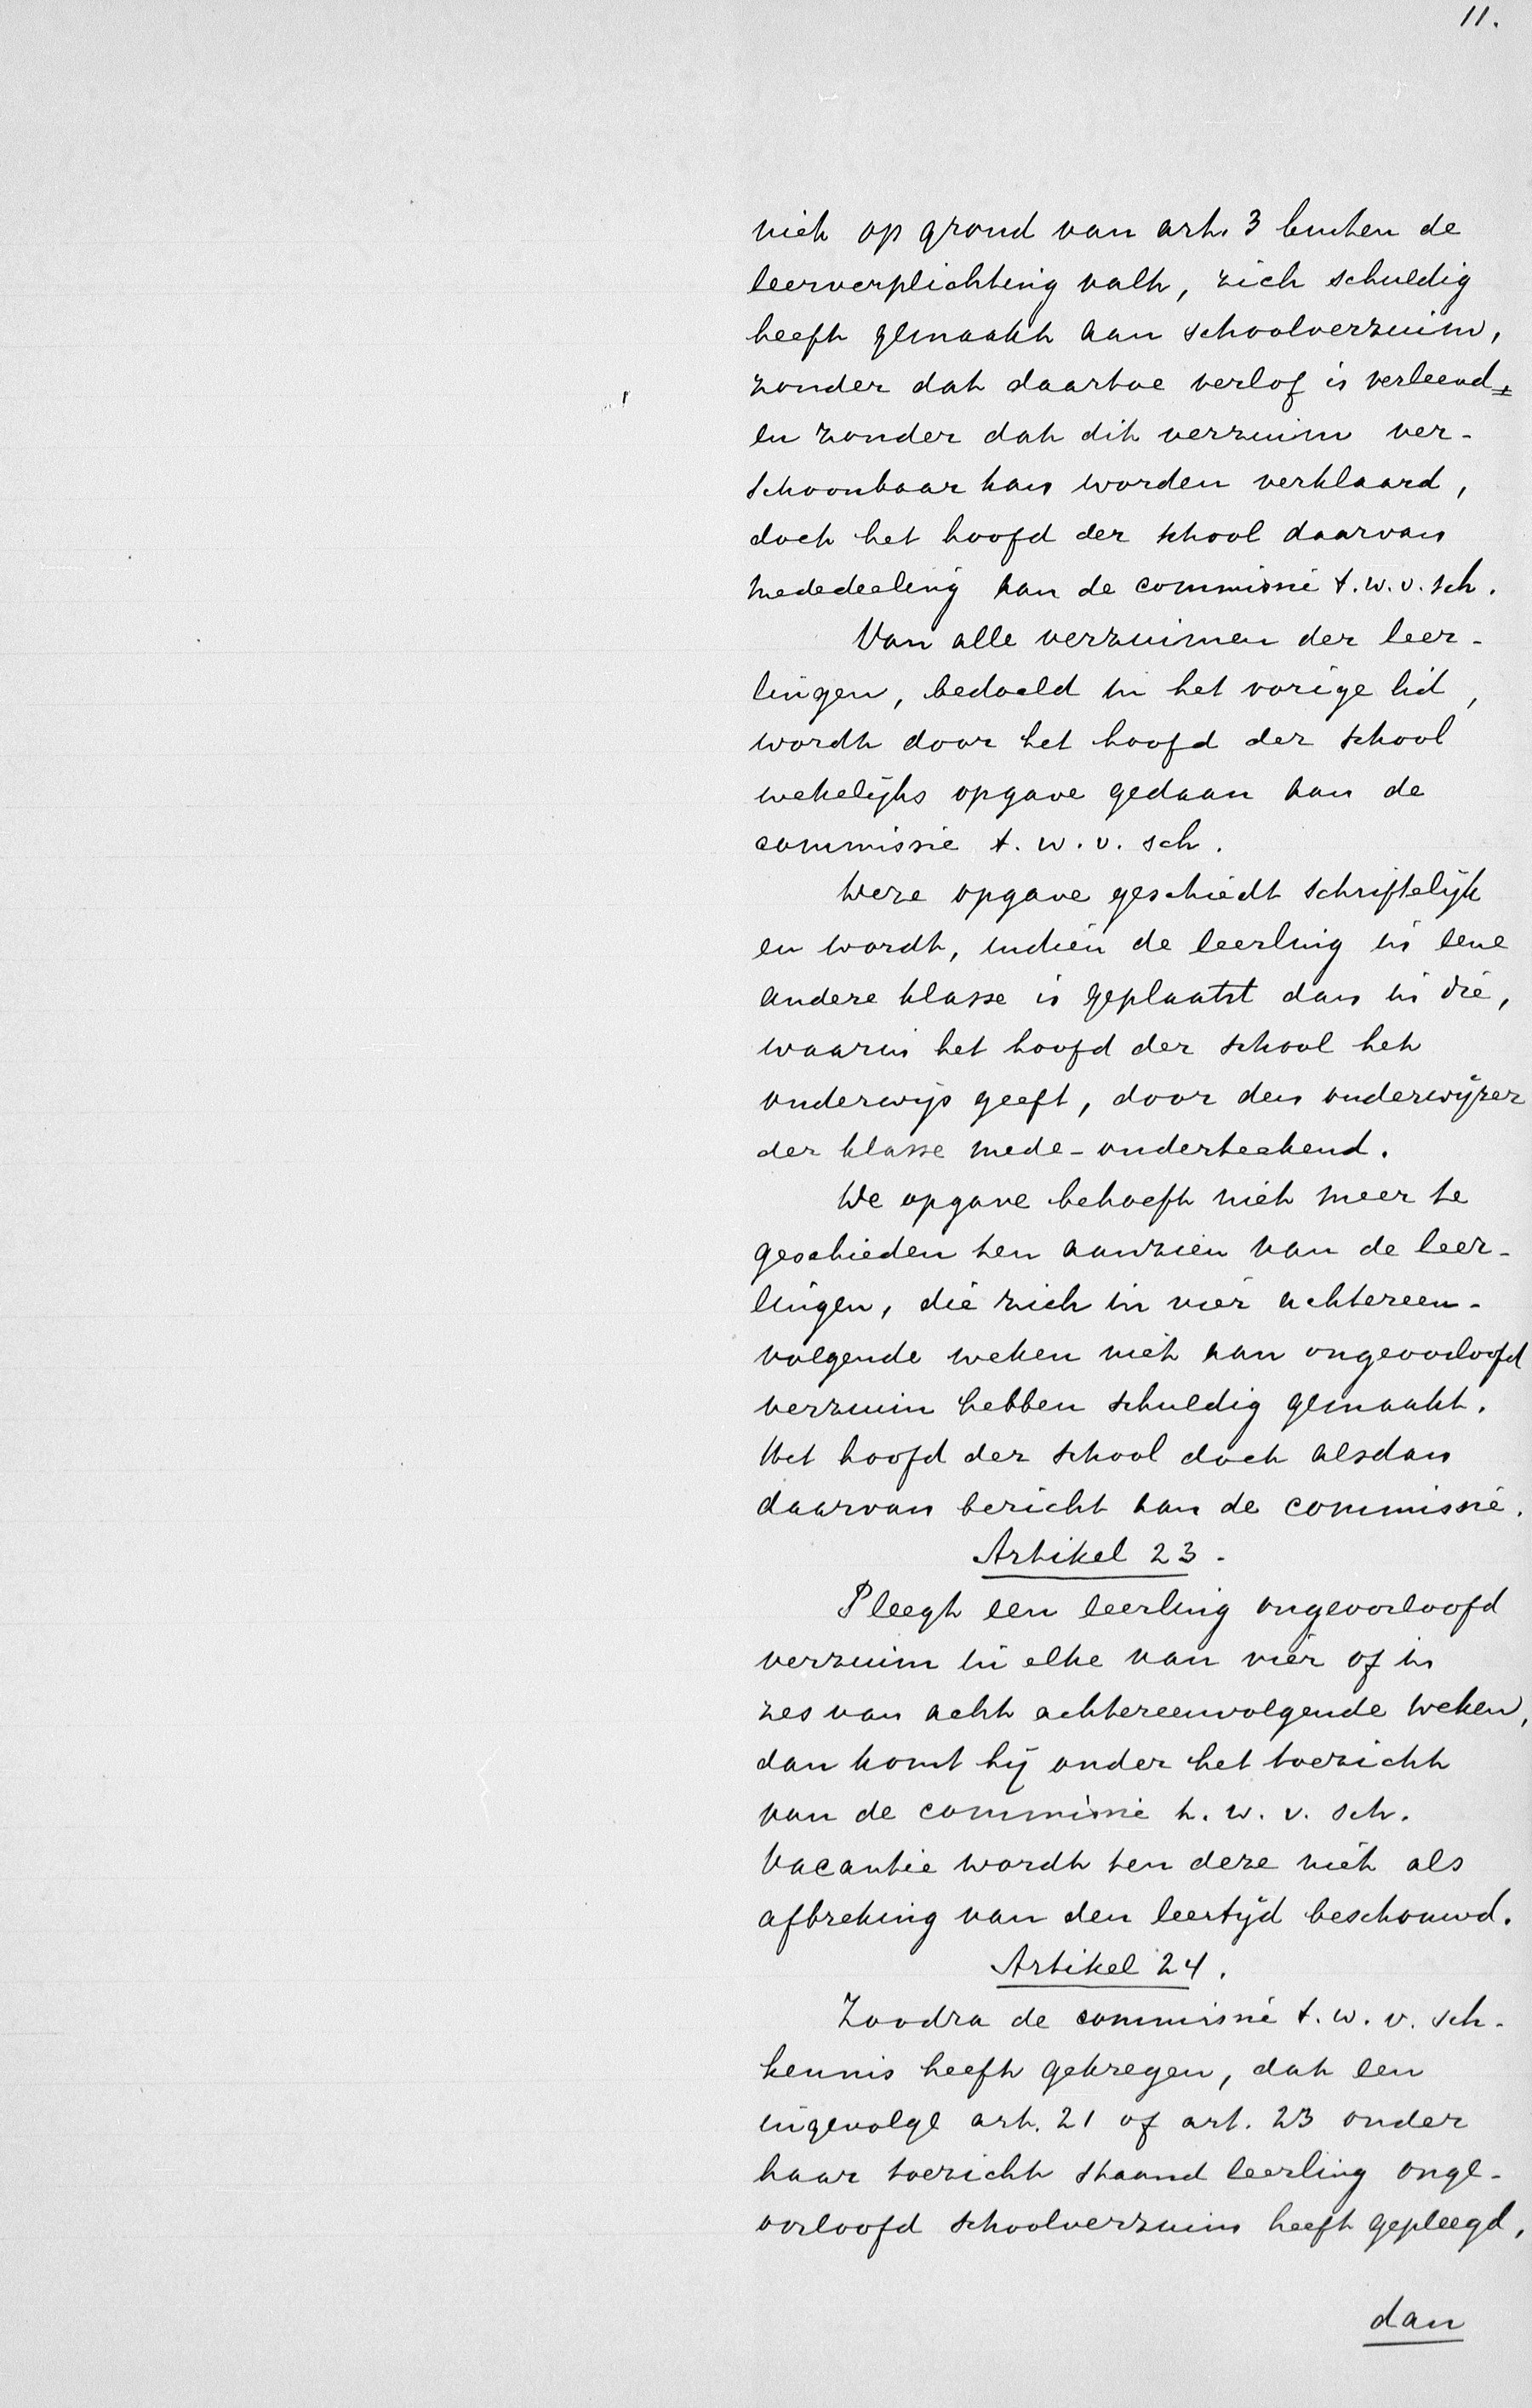 11.
niet op grond van art. 3 buiten de
leerverplichting valt, zich schuldig
heeft gemaakt aan schoolverzuim,
zonder dat daartoe verlof is verleend
en zonder dat dit verzuim ver-
schoonbaar kan worden verklaard,
doet het hoofd der school daarvan
mededeeling aan de commissie t.w.v.sch.
Van alle verzuimen der leer-
lingen, bedoeld in het vorige lid,
wordt door het hoofd der school
wekelijks opgave gedaan aan de
commissie t.w.v. sch.
Deze opgave geschiedt schriftelijk
en wordt, indien de leerling in eene
andere klasse is geplaatst dan in die,
waarin het hoofd der school het
onderwijs geeft, door den onderwijzer
der klasse mede-onderteekend.
De opgave behoeft niet meer te
geschieden ten aanzien van de leer-
lingen, die zich in vier achtereen-
volgende weken niet aan ongeoorloofd
verzuim hebben schuldig gemaakt.
Het hoofd der school doet alsdan
daarvan bericht aan de commissie.
Artikel 23.
Pleegt een leerling ongeoorloofd
verzuim in elke van vier of in
zes van acht achtereenvolgende weken,
dan komt hij onder het toezicht
van de commissie t.w.v. sch.
Vacantie wordt ten deze niet als
afbreking van den leertijd beschouwd.
Artikel 24.
Zoodra de commissie t.w.v. sch.
kennis heeft gekregen, dat een
ingevolge art. 21 of art. 23 onder
haar toezicht staand leerling onge-
oorloofd schoolverzuim heeft gepleegd,
dan